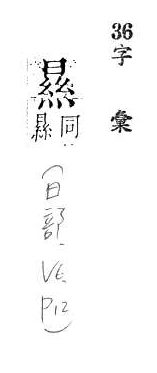 36
字彙
㬎
同
(日部. V6. P12)